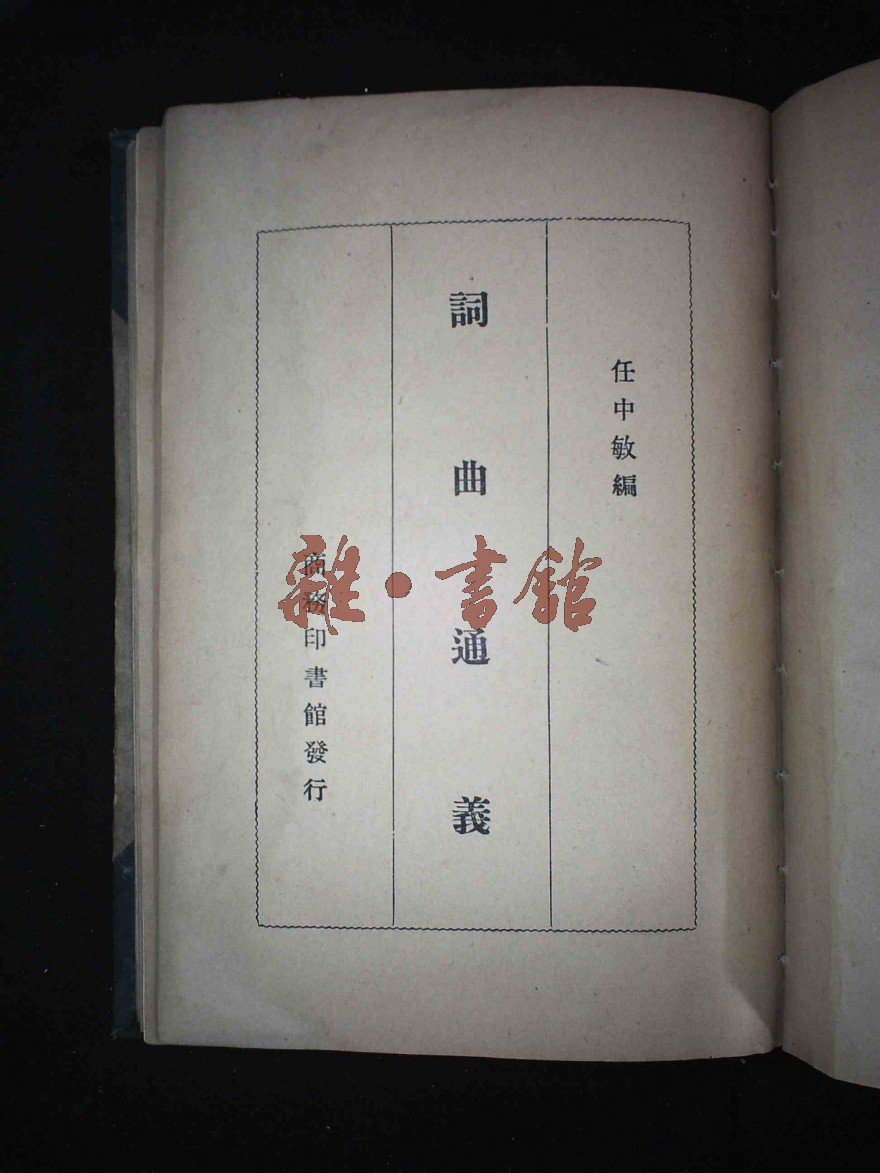 任中敏編
詞曲通義
商務印書館發行
雜·書館